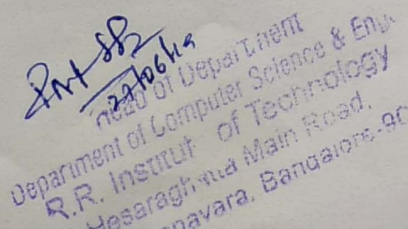 27/06/19
Head of Department
Department of Computer Science & Eng
R.R. Institut of Technology
Hesaraghatta Main Road,
navara, Bangalore-90